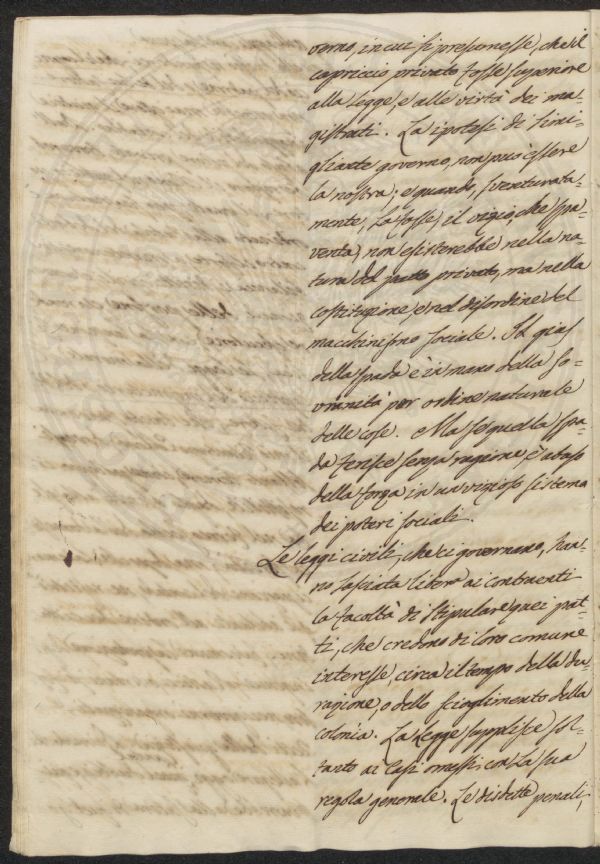 verno, in cui si presumesse, che il
capriccio privato fosse superiore
alla legge, e alle virtà dei ma-
gistrati. La ipotesi di simi-
gliante governo, non può essere
la nostra; e quando, sventurata-
mente, la fosse, il vizio, che spa-
venta, non esisterebbe nella na-
tura del patto privato, ma nella
costituzione e nel disordine del
macchinismo sociale. Il gias
della spada è in mano della so-
vranità per ordine naturale
delle cose. Ma se quella spa-
da ferisce senza ragione, è abuso
della forza in un vizioso sistema
dei poteri sociali.
Le leggi civili, che ci governano, han-
no lasciata libera ai contraenti
la facoltà di stipulare quei pat-
ti, che credono di loro comune
interesse, circa il tempo della du-
razione, o dello scioglimento della
colonia. La legge supplisce sol-
tanto ai casi omessi con la sua
regola generale. Le disdette penali,